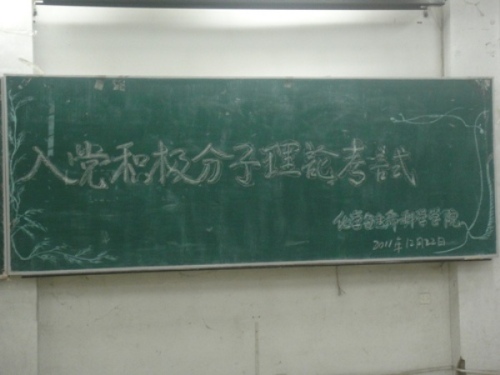 入党积极分子理论考试
化学与生命科学学院
2011年12月22日